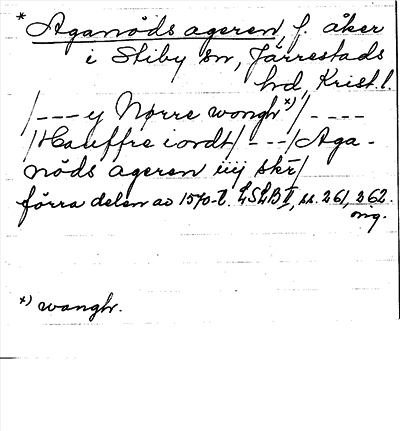 * Aganöds ageren, f. åker
i Stiby sn, Järrestads
hd, Krist.l.
/---y Nørre wongh x)/----
/Hauffre iordt/---/Aga-
nöds ageren iiij skr/
förra delen av 1570-t. LSLB II, ss. 261, 262.
orig.
x) wangh.